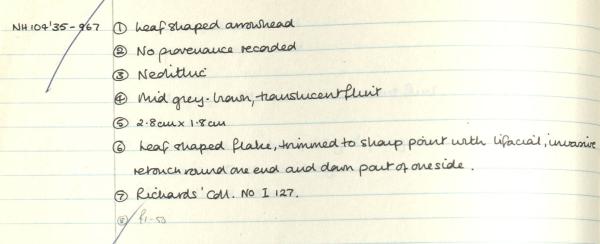 NH 104'35-967 ① Leaf shaped arrowhead
② No provenance recorded
③ Neolithic
④ Mid grey-brown, translucent flint
⑤ 2.8cm x 1.8cm
⑥ Leaf shaped flake, trimmed to sharp point with bifacial, invasive
retouch round one end and down part of one side.
⑦ Richards' Coll. No I 127.
⑧